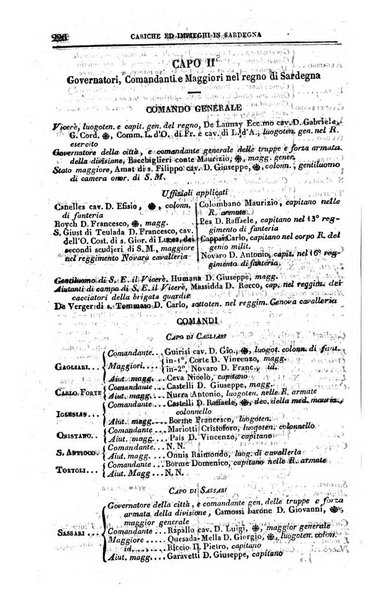 226 CARICHE ED IMPIEGHI IN SARDEGNA
CAPO II
Governatori, Comandanti e Maggiori nel regno di Sardegna
COMANDO GENERALE
Vicerè, luogoten. e capit. gen. del regno, De Launay Ecc.mo cav. D. Gabriele,
G. Cord. Comm. L. d'O. di Fr. e cav. di L. d'A., luogoten. gen. nel R.
esercito
Governatore della città, e comandante generale delle truppe e forze armata
della divisione, Bacchiglieri conte Maurizio, magg. gener.
Stato maggiore, Amat di S. Filippo cav. D. Giuseppe, colonn., gentiluomo
di camera onor. di S. M.
Uffiziali applicati
Canelles cav. D. Efisio, colonn.
di fanteria
Roych D. Francesco, magg. id.
S. Giust di Teulada D. Francesco, cav.
dell'O. Cost. di s. Gior. di Lucca, dei
secondi scudieri di S. M., maggiore
nel reggimento Novara cavalleria
Colombano Maurizio, capitano nelle
R. armate
Pes D. Raffaele, capitano nel 13° reg-
gimento di fanteria
Cappai Carlo, capitano nel corpo R. del
genio militare
Novaro D. Antonio, capit. nel 16° reg-
gimento di fanteria
Gentiluomo di S. E. il Vicerè, Humana D. Giuseppe, magg.
Aiutanti di campo di S. E. il Vicerè, Massidda D. Rocco, cap. nel reggim. dei
cacciatori della brigata guardie
De Verger di s. Tommaso D. Carlo, sottoten. nel reggim. Genova cavalleria
COMANDI
CAPO DI CAGLIARI
CAGLIARI. Comandante Guirisi cav. D. Gio., luogot. colonn. di fant.
Maggiori in-1°, Corte D. Vincenzo, magg.
in-2°, Novaro D. Franc. id.
Aiut. magg. Ceva Nicolò, capitano
CARLO FORTE Comandante Castelli D. Giuseppe, magg.
Aiut. magg. Nurra Antonio, luogoten. nelle R. armate
IGLESIAS Comandante Castelli D. Raffaele, dec. della med. mauriz.,
colonnello
Aiut. magg. Borme Francesco, luogoten.
ORISTANO Comandante Mariotti Cristoforo, luogoten. colonnello
Aiut. magg. Pais D. Vincenzo, capitano
S. ANTIOCO Comandante N. N.
Aiut. magg. Onnis Raimondo, luog. di cavalleria
TORTOLI Comandante Borme Domenico, capitano nelle R. armate
Aiut. magg. N. N.
CAPO DI SASSARI
SASSARI Governatore della città, e comandante gen. delle truppe e forza
armata della divisione, Camossi barone D. Giovanni,
maggior generale
Comandante Rapallo cav. D. Luigi, maggior generale
Maggiore Quesada-Mella cav. D. Giuseppe, magg.
id. Riccio D. Pietro, capitano
Aiut. magg. Garavetti D. Giuseppe, capitano